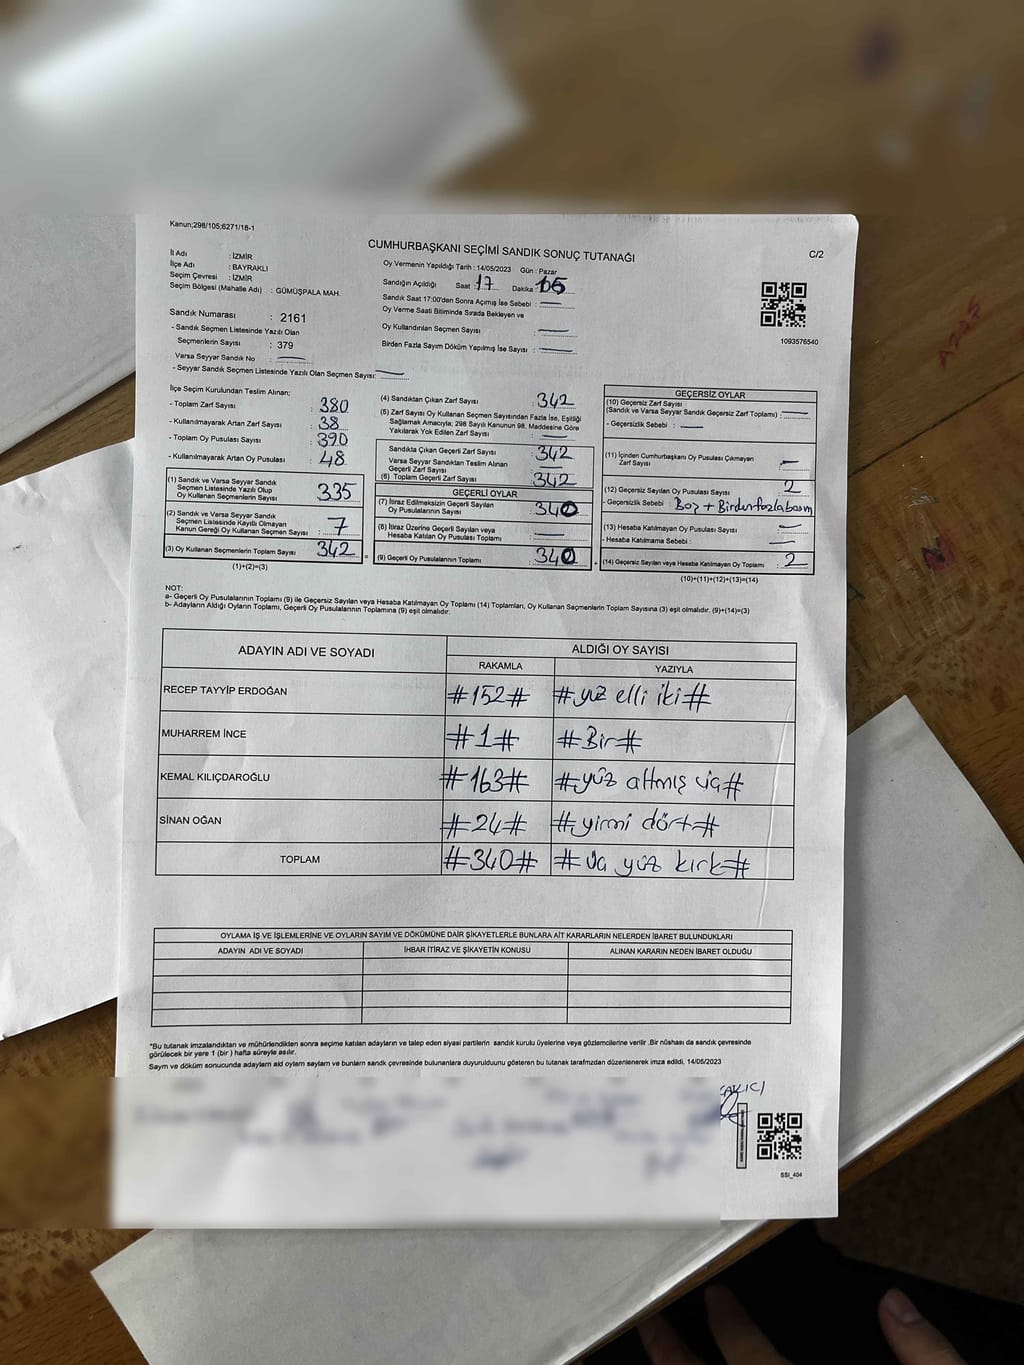 Kanun;298/105;6271/18-1
CUMHURBAŞKANI SEÇİMİ SANDIK SONUÇ TUTANAĞI
C/2
İl Adı : İZMİR
İlçe Adı : BAYRAKLI
Seçim Çevresi : İZMİR
Seçim Bölgesi (Mahalle Adı) : GÜMÜŞPALA MAH.
Oy Vermenin Yapıldığı Tarih : 14/05/2023 Gün : Pazar
Sandığın Açıldığı Saat : 17 Dakika :
Sandık Saat 17:00'den Sonra Açımış İse Sebebi :
Oy Verme Saati Bitiminde Sırada Bekleyen ve
Oy Kullandırılan Seçmen Sayısı :
Birden Fazla Sayım Döküm Yapılmış İse Sayısı :
1093576540
Sandık Numarası : 2161
- Sandık Seçmen Listesinde Yazılı Olan
Seçmenlerin Sayısı : 379
Varsa Seyyar Sandık No :
- Seyyar Sandık Seçmen Listesinde Yazılı Olan Seçmen Sayısı:
İlçe Seçim Kurulundan Teslim Alınan;
- Toplam Zarf Sayısı : 380
- Kullanılmayarak Artan Zarf Sayısı : 38
- Toplam Oy Pusulası Sayısı : 390
- Kullanılmayarak Artan Oy Pusulası : 48
(1) Sandık ve Varsa Seyyar Sandık
Seçmen Listesinde Yazılı Olup
Oy Kullanan Seçmenlerin Sayısı : 335
(2) Sandık ve Varsa Seyyar Sandık
Seçmen Listesinde Kayıtlı Olmayan
Kanun Gereği Oy Kullanan Seçmen Sayısı : 7
(3) Oy Kullanan Seçmenlerin Toplam Sayısı : 342 =
(1)+(2)=(3)
(4) Sandıktan Çıkan Zarf Sayısı : 342
(5) Zarf Sayısı Oy Kullanan Seçmen Sayısından Fazla İse, Eşitliği
Sağlamak Amacıyla; 298 Sayılı Kanunun 98. Maddesine Göre
Yakılarak Yok Edilen Zarf Sayısı :
Sandıkta Çıkan Geçerli Zarf Sayısı : 342
Varsa Seyyar Sandıktan Teslim Alınan
Geçerli Zarf Sayısı :
(6) Toplam Geçerli Zarf Sayısı : 342
GEÇERLİ OYLAR
(7) İtiraz Edilmeksizin Geçerli Sayılan
Oy Pusulasının Sayısı : 340
(8) İtiraz Üzerine Geçerli Sayılan veya
Hesaba Katılan Oy Pusulası Toplamı :
(9) Geçerli Oy Pusulalarının Toplamı : 340 +
GEÇERSİZ OYLAR
(10) Geçersiz Zarf Sayısı
(Sandık ve Varsa Seyyar Sandık Geçersiz Zarf Toplamı) :
- Geçersizlik Sebebi :
(11) İçinden Cumhurbaşkanı Oy Pusulası Çıkmayan
Zarf Sayısı :
(12) Geçersiz Sayılan Oy Pusulası Sayısı : 2
- Geçersizlik Sebebi : Boş + Birden fazla basım
(13) Hesaba Katılmayan Oy Pusulası Sayısı :
- Hesaba Katılmama Sebebi :
(14) Geçersiz Sayılan veya Hesaba Katılmayan Oy Toplamı : 2
(10)+(11)+(12)+(13)=(14)
NOT:
a- Geçerli Oy Pusulalarının Toplamı (9) ile Geçersiz Sayılan veya Hesaba Katılmayan Oy Toplamı (14) Toplamları, Oy Kullanan Seçmenlerin Toplam Sayısına (3) eşit olmalıdır. (9)+(14)=(3)
b- Adayların Aldığı Oyların Toplamı, Geçerli Oy Pusulalarının Toplamına (9) eşit olmalıdır.
ADAYIN ADI VE SOYADI ALDIĞI OY SAYISI
RAKAMLA YAZIYLA
RECEP TAYYİP ERDOĞAN #152# #yüz elli iki#
MUHARREM İNCE #1# #Bir#
KEMAL KILIÇDAROĞLU #163# #yüz altmış üç#
SİNAN OĞAN #24# #yirmi dört#
TOPLAM #340# #üç yüz kırk#
OYLAMA İŞ VE İŞLEMLERİNE VE OYLARIN SAYIM VE DÖKÜMÜNE DAİR ŞİKAYETLERLE BUNLARA AİT KARARLARIN NELERDEN İBARET BULUNDUKLARI
ADAYIN ADI VE SOYADI İHBAR İTİRAZ VE ŞİKAYETİN KONUSU ALINAN KARARIN NEDEN İBARET OLDUĞU
*Bu tutanak imzalandıktan ve mühürlendikten sonra seçime katılan adayların ve talep eden siyasi partilerin sandık kurulu üyelerine veya gözlemcilerine verilir .Bir nüshası da sandık çevresinde
görülecek bir yere 1 (bir ) hafta süreyle asılır.
Sayım ve döküm sonucunda adayların aldı oyların sayları ve bunların sandık çevresinde bulunanlara duyurulduunu gösteren bu tutanak tarafımzdan düzenlenerek imza edildi. 14/05/2023
SSI_404